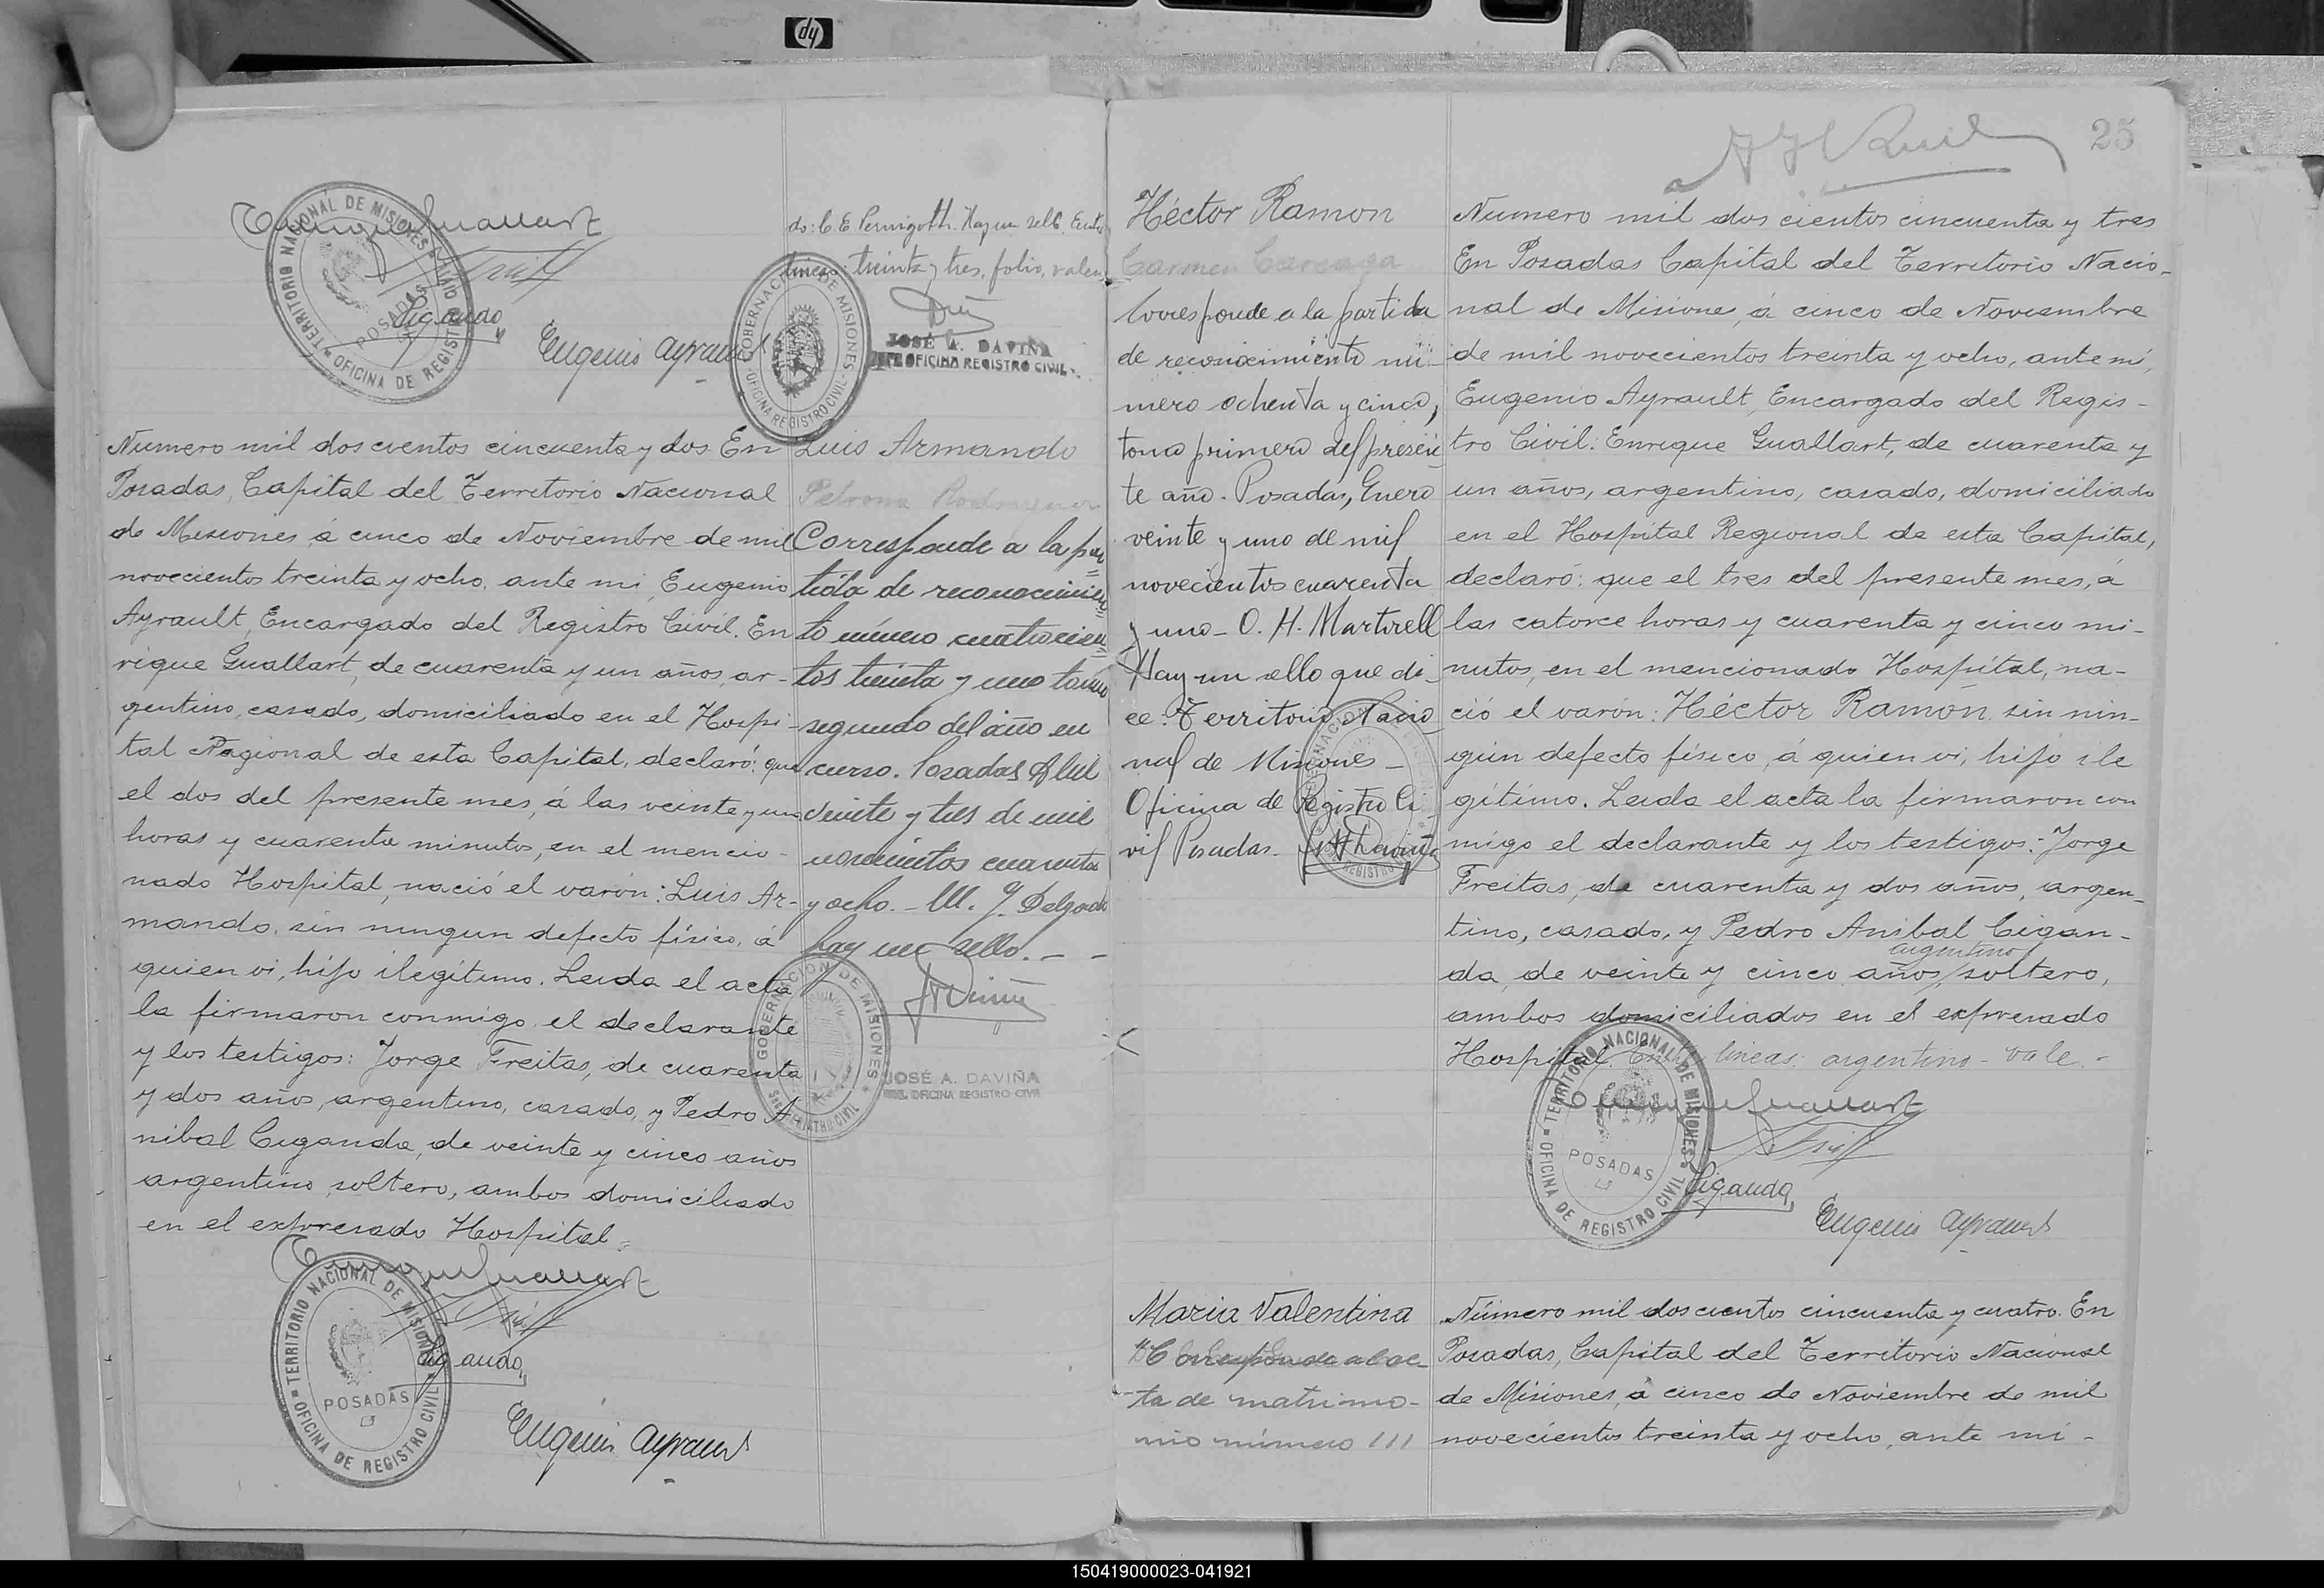 hp
do: C. E. Pernigotti. Hay un sello. Entre
líneas: treinta y tres, folio, valen
JOSÉ A. DAVIÑA
JEFE OFICINA REGISTRO CIVIL
TERRITORIO NACIONAL DE MISIONES
OFICINA DE REGISTRO CIVIL
POSADAS
Ciganda
Eugenio Ayrault
GOBERNACION DE MISIONES
OFICINA REGISTRO CIVIL
Numero mil dos cientos cincuenta y dos En
Posadas, Capital del Territorio Nacional
de Misiones, á cinco de Noviembre de mil
novecientos treinta y ocho, ante mi, Eugenio
Ayrault, Encargado del Registro Civil. En
rique Guallart, de cuarenta y un años, ar-
gentino, casado, domiciliado en el Hospi-
tal Regional de esta Capital, declaró: que
el dos del presente mes, á las veinte y un
horas y cuarenta minutos, en el mencio-
nado Hospital, nació el varón: Luis Ar-
mando, sin ningun defecto físico, á
quien vi, hijo ilegítimo. Leida el acta
la firmaron conmigo el declarante
y los testigos: Jorge Freitas, de cuarenta
y dos años, argentino, casado, y Pedro A
nibal Ciganda, de veinte y cinco años
argentino, soltero, ambos domiciliado
en el expresado Hospital.
Luis Armando
Petrona Rodriguez
Corresponde a la par
tida de reconocimien
to número cuatrocien
tos treinta y uno tomo
segundo del año en
curso. Posadas Abril
veinte y tres de mil
novecientos cuarenta
y ocho. - M. J. Delgado
hay un sello. - -
GOBERNACION DE MISIONES
JOSÉ A. DAVIÑA
JEFE OFICINA REGISTRO CIVIL
TERRITORIO NACIONAL DE MISIONES
OFICINA DE REGISTRO CIVIL
POSADAS
Ciganda
Eugenio Ayrault
25
Héctor Ramon
Carmen Careaga
Corresponde a la partida
de reconocimiento nú-
mero ochenta y cinco,
tomo primero del presen
te año. Posadas, Enero
veinte y uno de mil
novecientos cuarenta
y uno - O. H. Martorell
Hay un sello que di-
ce: Territorio Nacio
nal de Misiones -
Oficina de Registro Ci
vil Posadas.
Numero mil dos cientos cincuenta y tres
En Posadas Capital del Territorio Nacio-
nal de Misiones, á cinco de Noviembre
de mil novecientos treinta y ocho, ante mi,
Eugenio Ayrault, Encargado del Regis-
tro Civil: Enrique Guallart, de cuarenta y
un años, argentino, casado, domiciliado
en el Hospital Regional de esta Capital,
declaró: que el tres del presente mes, á
las catorce horas y cuarenta y cinco mi-
nutos, en el mencionado Hospital, na-
ció el varón: Héctor Ramón, sin nin-
gún defecto físico, á quien vi, hijo ile
gítimo. Leida el acta la firmaron con
migo el declarante y los testigos: Jorge
Freitas, de cuarenta y dos años, argen-
tino, casado, y Pedro Anibal Cigan-
argentino
da, de veinte y cinco años, soltero,
ambos domiciliados en el expresado
Hospital. Entre lineas: argentino - vale. -
TERRITORIO NACIONAL DE MISIONES
OFICINA DE REGISTRO CIVIL
POSADAS
Ciganda
Eugenio Ayrault
Maria Valentina
Corresponde al ac-
ta de matrimo-
nio número 111
Número mil dos cientos cincuenta y cuatro. En
Posadas, Capital del Territorio Nacional
de Misiones, á cinco de Noviembre de mil
novecientos treinta y ocho, ante mi -
150419000023-041921